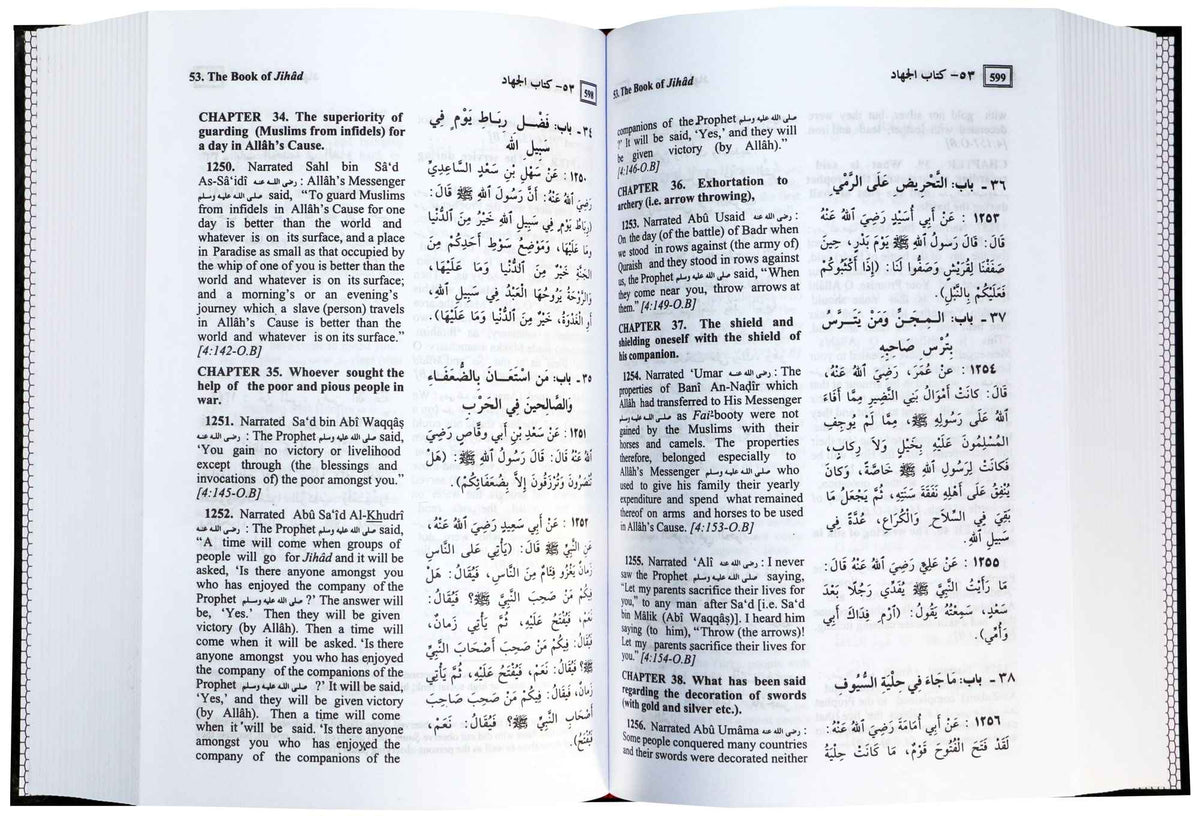 53. The Book of Jihâd
٥٣- كتاب الجهاد
598
CHAPTER 34. The superiority of
guarding (Muslims from infidels) for
a day in Allâh's Cause.
1250. Narrated Sahl bin Sâ‘d
As-Sâ‘idî رضى الله عنه : Allâh's Messenger
صلى الله عليه وسلم said, “To guard Muslims
from infidels in Allâh's Cause for one
day is better than the world and
whatever is on its surface, and a place
in Paradise as small as that occupied by
the whip of one of you is better than the
world and whatever is on its surface;
and a morning's or an evening's
journey which a slave (person) travels
in Allâh's Cause is better than the
world and whatever is on its surface.”
[4:142-O.B]
CHAPTER 35. Whoever sought the
help of the poor and pious people in
war.
1251. Narrated Sa‘d bin Abî Waqqâṣ
رضى الله عنه : The Prophet صلى الله عليه وسلم said,
‘You gain no victory or livelihood
except through (the blessings and
invocations of) the poor amongst you.”
[4:145-O.B]
1252. Narrated Abû Sa‘îd Al-Khudrî
رضى الله عنه : The Prophet صلى الله عليه وسلم said,
“A time will come when groups of
people will go for Jihâd and it will be
asked, ‘Is there anyone amongst you
who has enjoyed the company of the
Prophet صلى الله عليه وسلم ?’ The answer will
be, ‘Yes.’ Then they will be given
victory (by Allâh). Then a time will
come when it will be asked. ‘Is there
anyone amongst you who has enjoyed
the company of the companions of the
Prophet صلى الله عليه وسلم ?’ It will be said,
‘Yes,’ and they will be given victory
(by Allâh). Then a time will come
when it will be said. ‘Is there anyone
amongst you who has enjoyed the
company of the companions of the
٣٤ - باب: فَضْل رِبَاطِ يَوْمٍ فِي
سَبِيلِ اللَّه
١٢٥٠ : عَنْ سَهْلِ بْنِ سَعْدٍ السَّاعِدِيِّ
رَضِيَ اللهُ عَنْهُ: أَنَّ رَسُولَ اللهِ ﷺ قَالَ:
(رِبَاطُ يَوْمٍ فِي سَبِيلِ اللهِ خَيْرٌ مِنَ الدُّنْيَا
وَمَا عَلَيْهَا، وَمَوْضِعُ سَوْطِ أَحَدِكُمْ مِنَ
الجَنَّةِ خَيْرٌ مِنَ الدُّنْيَا وَمَا عَلَيْهَا،
وَالرَّوْحَةُ يَرُوحُهَا الْعَبْدُ فِي سَبِيلِ اللهِ،
أَوِ الْغَدْوَةُ، خَيْرٌ مِنَ الدُّنْيَا وَمَا عَلَيْهَا).
٣٥ - باب: مَنِ اسْتَعَانَ بِالضُّعَفَاءِ
وَالصَّالِحِينَ فِي الحَرْبِ
١٢٥١ : عَنْ سَعْدِ بْنِ أَبِي وَقَّاصٍ رَضِيَ
اللهُ عَنْهُ قَالَ: قَالَ رَسُولُ اللهِ ﷺ: (هَلْ
تُنْصَرُونَ وَتُرْزَقُونَ إِلاَّ بِضُعَفَائِكُمْ).
١٢٥٢ : عَنْ أَبِي سَعِيدٍ رَضِيَ اللهُ عَنْهُ،
عَنِ النَّبِيِّ ﷺ قَالَ: (يَأْتِي عَلَى النَّاسِ
زَمَانٌ يَغْزُو فِئَامٌ مِنَ النَّاسِ، فَيُقَالُ: هَلْ
فِيكُمْ مَنْ صَحِبَ النَّبِيَّ ﷺ؟ فَيُقَالُ:
نَعَمْ، فَيُفْتَحُ عَلَيْهِ، ثُمَّ يَأْتِي زَمَانٌ،
فَيُقَالُ: فِيكُمْ مَنْ صَحِبَ أَصْحَابَ النَّبِيِّ
ﷺ؟ فَيُقَالُ: نَعَمْ، فَيُفْتَحُ عَلَيْهِ، ثُمَّ يَأْتِي
زَمَانٌ، فَيُقَالُ: فِيكُمْ مَنْ صَحِبَ صَاحِبَ
أَصْحَابِ النَّبِيِّ ﷺ؟ فَيُقَالُ: نَعَمْ،
فَيُفْتَحُ).
53. The Book of Jihâd
٥٣- كتاب الجهاد
599
companions of the Prophet صلى الله عليه وسلم
?’ It will be said, ‘Yes,’ and they will
be given victory (by Allâh).”
[4:146-O.B]
CHAPTER 36. Exhortation to
archery (i.e. arrow throwing),
1253. Narrated Abû Usaid رضى الله عنه :
On the day (of the battle) of Badr when
we stood in rows against (the army of)
Quraish and they stood in rows against
us, the Prophet صلى الله عليه وسلم said, “When
they come near you, throw arrows at
them.” [4:149-O.B]
CHAPTER 37. The shield and
shielding oneself with the shield of
his companion.
1254. Narrated ‘Umar رضى الله عنه : The
properties of Banî An-Naḍîr which
Allâh had transferred to His Messenger
صلى الله عليه وسلم as Fai’ booty were not
gained by the Muslims with their
horses and camels. The properties
therefore, belonged especially to
Allâh's Messenger صلى الله عليه وسلم who
used to give his family their yearly
expenditure and spend what remained
thereof on arms and horses to be used
in Allâh's Cause. [4:153-O.B]
1255. Narrated ‘Alî رضى الله عنه : I never
saw the Prophet صلى الله عليه وسلم saying,
“Let my parents sacrifice their lives for
you,” to any man after Sa‘d [i.e. Sa‘d
bin Mâlik (Abî Waqqâṣ)]. I heard him
saying (to him), “Throw (the arrows)!
Let my parents sacrifice their lives for
you.” [4:154-O.B]
CHAPTER 38. What has been said
regarding the decoration of swords
(with gold and silver etc.).
1256. Narrated Abû Umâma رضى الله عنه :
Some people conquered many countries
and their swords were decorated neither
٣٦ - باب: التَّحْرِيضِ عَلَى الرَّمْيِ
١٢٥٣ : عَنْ أَبِي أُسَيْدٍ رَضِيَ اللهُ عَنْهُ
قَالَ: قَالَ رَسُولُ اللهِ ﷺ يَوْمَ بَدْرٍ، حِينَ
صَفَفْنَا لِقُرَيْشٍ وَصَفُّوا لَنَا: (إِذَا أَكْثَبُوكُمْ
فَعَلَيْكُمْ بِالنَّبْلِ).
٣٧ - باب: المِجَنِّ وَمَنْ يَتَرَّسُ
بِتُرْسِ صَاحِبِهِ
١٢٥٤ : عَنْ عُمَرَ، رَضِيَ اللهُ عَنْهُ،
قَالَ: كَانَتْ أَمْوَالُ بَنِي النَّضِيرِ مِمَّا أَفَاءَ
اللهُ عَلَى رَسُولِهِ ﷺ، مِمَّا لَمْ يُوجِفِ
المُسْلِمُونَ عَلَيْهِ بِخَيْلٍ وَلاَ رِكَابٍ،
فَكَانَتْ لِرَسُولِ اللهِ ﷺ خَاصَّةً، وَكَانَ
يُنْفِقُ عَلَى أَهْلِهِ نَفَقَةَ سَنَتِهِ، ثُمَّ يَجْعَلُ مَا
بَقِيَ فِي السِّلاَحِ وَالْكُرَاعِ، عُدَّةً فِي
سَبِيلِ اللهِ.
١٢٥٥ : عَنْ عَلِيٍّ رَضِيَ اللهُ عَنْهُ قَالَ:
مَا رَأَيْتُ النَّبِيَّ ﷺ يُفَدِّي رَجُلًا بَعْدَ
سَعْدٍ، سَمِعْتُهُ يَقُولُ: (ارْمِ فِدَاكَ أَبِي
وَأُمِّي).
٣٨ - باب: مَا جَاءَ فِي حِلْيَةِ السُّيُوفِ
١٢٥٦ : عَنْ أَبِي أُمَامَةَ رَضِيَ اللهُ عَنْهُ:
لَقَدْ فَتَحَ الْفُتُوحَ قَوْمٌ، مَا كَانَتْ حِلْيَةُ